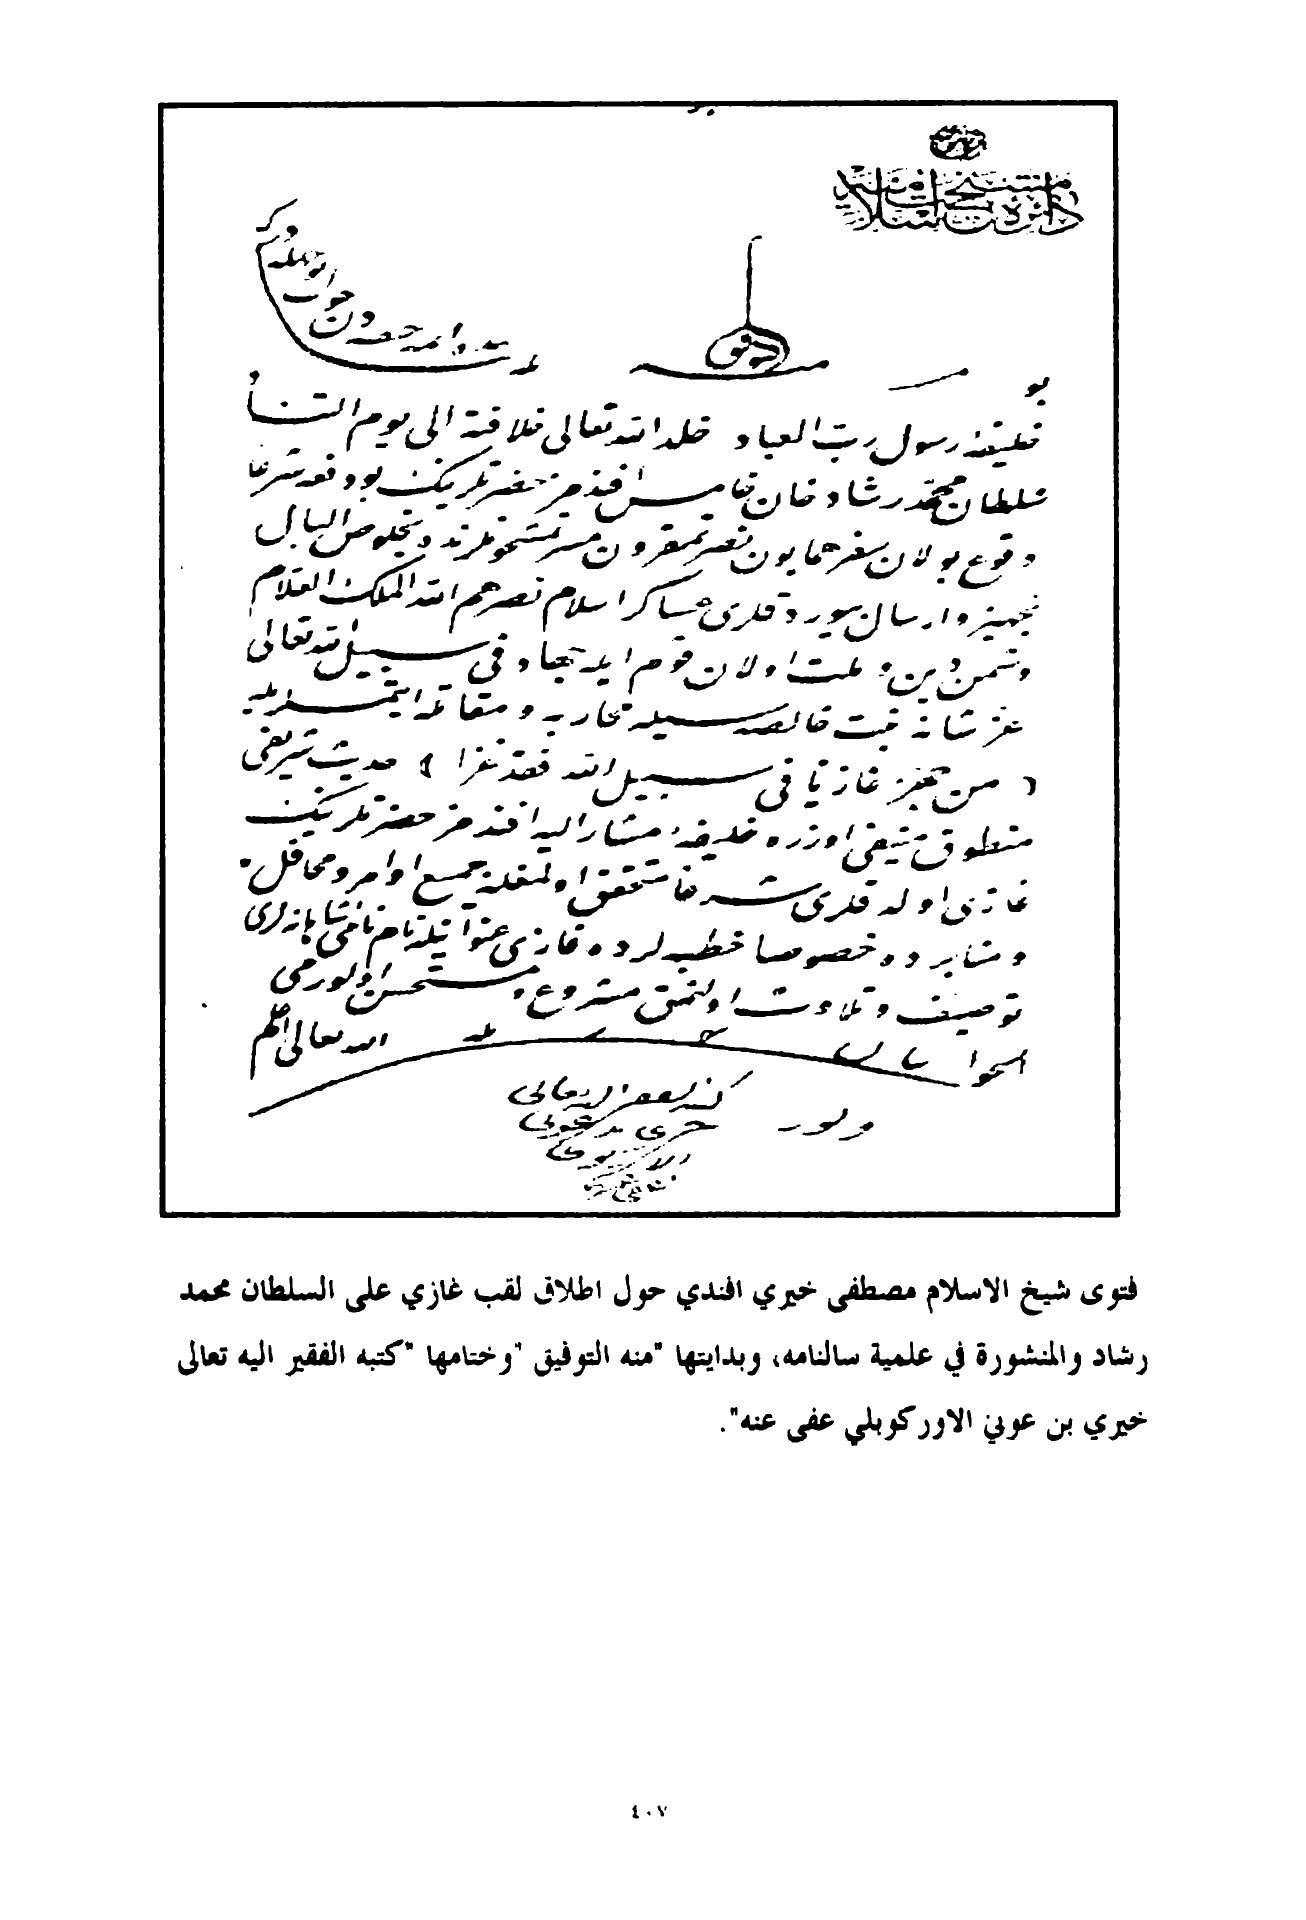 منه التوفيق
بو
خليفۀ رسول رب العباد خلد الله تعالى خلافته الى يوم التناد
سلطان محمد رشاد خان خامس افندمز حضرتلرينك بو دفعه شرعا
وقوع بولان سفر همايون نصرتمقرون
تجهيز و ارسال بيوردقلرى عساكر اسلام نصرهم الله الملك العلام
دشمن دين و ملت اولان قوم ايله جهاد فى سبيل الله تعالى
عز شانه نيت خالصه سيله محاربه و مقاتله ايتمسيله
( من جهز غازيا فى سبيل الله فقد غزا ) حديث شريفى
منطوق منيفى اوزره خليفۀ مشار اليه افندمز حضرتلرينك
غازى اولدقلرى شرعا متحقق اولمغله جميع اوامر و محافل
و منابرده خصوصا خطبه لرده غازى عنوانيله نام نامئ شاهانه لرى
توصيف و تلاوت اولنمق مشروع و مستحسن اولورمى
الجواب الله تعالى اعلم
اولور
كتبه الفقير اليه تعالى
خيرى بن عونى
الاركوبى
عفى عنه
فتوى شيخ الاسلام مصطفى خيري افندي حول اطلاق لقب غازي على السلطان محمد
رشاد والمنشورة في علمية سالنامه، وبدايتها "منه التوفيق "وختامها "كتبه الفقير اليه تعالى
خيري بن عوني الاوركوبلي عفى عنه".
٤٠٧